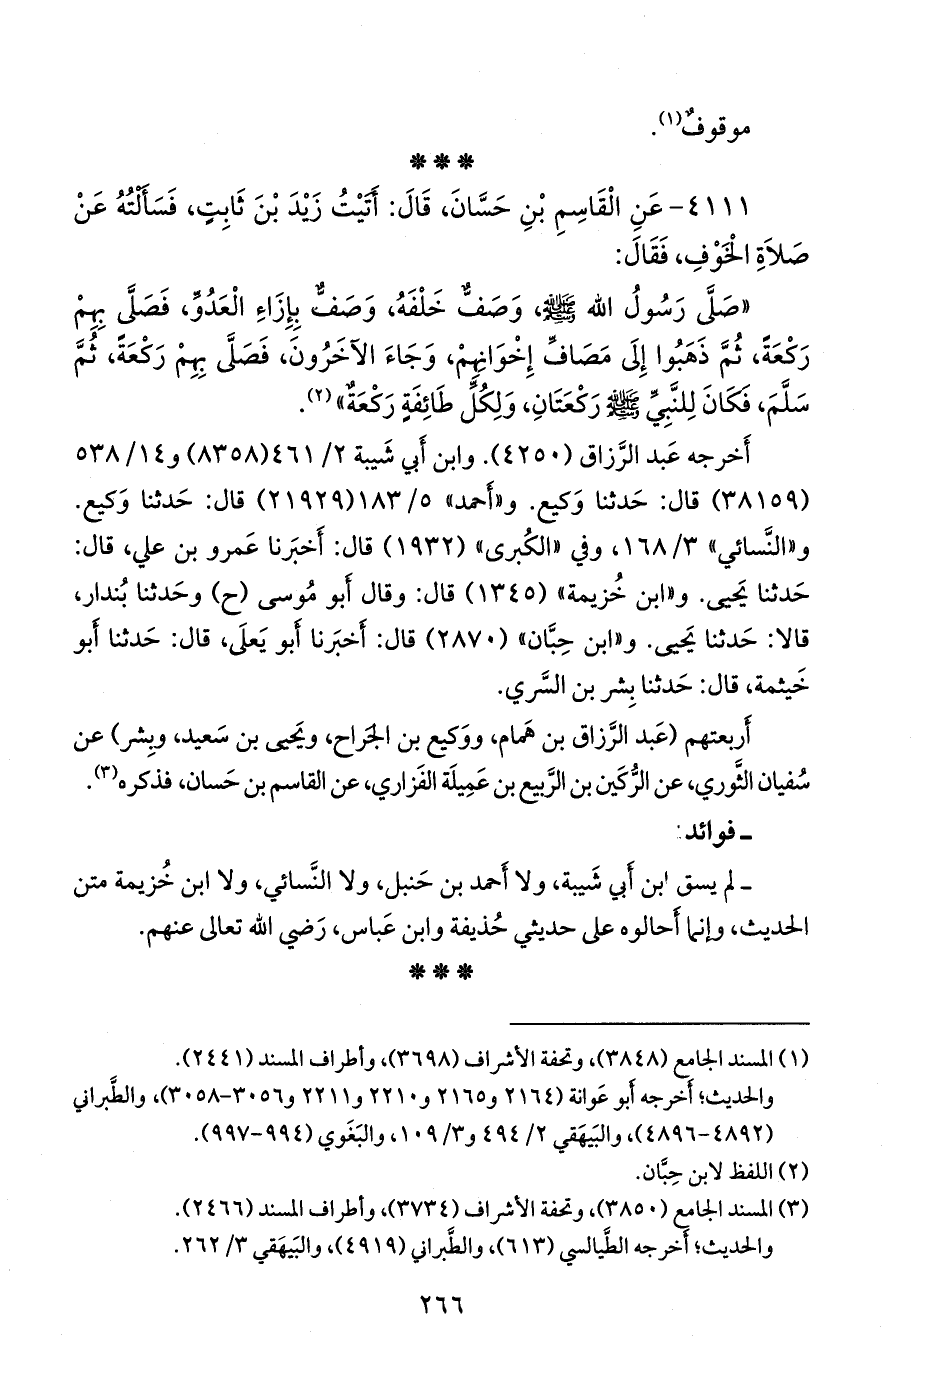 موقوفٌ(١).
***
٤١١١- عَنِ الْقَاسِمِ بْنِ حَسَّانَ، قَالَ: أَتَيْتُ زَيْدَ بْنَ ثَابِتٍ، فَسَأَلْتُهُ عَنْ
صَلاَةِ الْخَوْفِ، فَقَالَ:
«صَلَّى رَسُولُ الله ﷺ، وَصَفٌّ خَلْفَهُ، وَصَفٌّ بِإِزَاءِ الْعَدُوِّ، فَصَلَّى بِهِمْ
رَكْعَةً، ثُمَّ ذَهَبُوا إِلَى مَصَافِّ إِخْوَانِهِمْ، وَجَاءَ الآخَرُونَ، فَصَلَّى بِهِمْ رَكْعَةً، ثُمَّ
سَلَّمَ، فَكَانَ لِلنَّبِيِّ ﷺ رَكْعَتَانِ، وَلِكُلِّ طَائِفَةٍ رَكْعَةٌ»(٢).
أَخرجه عَبد الرَّزاق (٤٢٥٠). وابن أَبي شَيبة ٢/ ٤٦١(٨٣٥٨) و١٤/ ٥٣٨
(٣٨١٥٩) قال: حَدثنا وَكيع. و«أَحمد» ٥/ ١٨٣(٢١٩٢٩) قال: حَدثنا وَكيع.
و«النَّسائي» ٣/ ١٦٨، وفي «الكُبرى» (١٩٣٢) قال: أَخبَرنا عَمرو بن علي، قال:
حَدثنا يَحيى. و«ابن خُزيمة» (١٣٤٥) قال: وقال أَبو مُوسى (ح) وحَدثنا بُندار،
قالا: حَدثنا يَحيى. و«ابن حِبَّان» (٢٨٧٠) قال: أَخبَرنا أَبو يَعلَى، قال: حَدثنا أَبو
خَيثمة، قال: حَدثنا بِشر بن السَّري.
أَربعتهم (عَبد الرَّزاق بن هَمام، ووَكيع بن الجَراح، ويَحيى بن سَعيد، وبِشر) عن
سُفيان الثَّوري، عن الرُّكَين بن الرَّبيع بن عَمِيلَة الفَزاري، عن القاسم بن حَسان، فذكره(٣).
ـ فوائد:
ـ لم يسق ابن أَبي شَيبة، ولا أَحمد بن حَنبل، ولا النَّسائي، ولا ابن خُزيمة متن
الحديث، وإنما أَحالوه على حديثي حُذيفة وابن عَباس، رَضي الله تعالى عنهم.
***
(١) المسند الجامع (٣٨٤٨)، وتحفة الأشراف (٣٦٩٨)، وأطراف المسند (٢٤٤١).
والحديث؛ أَخرجه أَبو عَوانة (٢١٦٤ و٢١٦٥ و٢٢١٠ و٢٢١١ و٣٠٥٦-٣٠٥٨)، والطَّبراني
(٤٨٩٢-٤٨٩٦)، والبَيهَقي ٢/ ٤٩٤ و٣/ ١٠٩، والبَغَوي (٩٩٤-٩٩٧).
(٢) اللفظ لابن حِبَّان.
(٣) المسند الجامع (٣٨٥٠)، وتحفة الأشراف (٣٧٣٤)، وأطراف المسند (٢٤٦٦).
والحديث؛ أَخرجه الطَّيالسي (٦١٣)، والطَّبراني (٤٩١٩)، والبَيهَقي ٣/ ٢٦٢.
٢٦٦